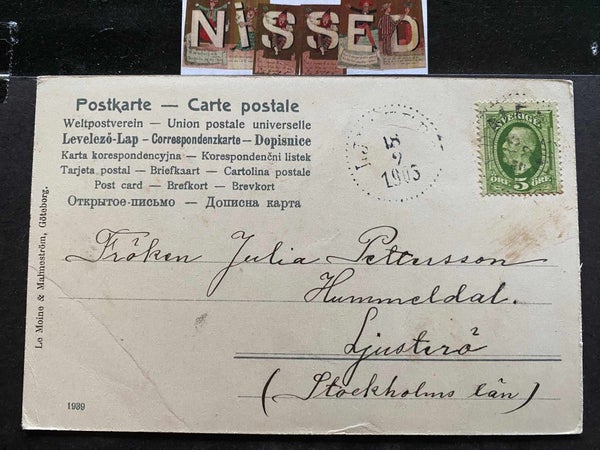 NiSSED
Postkarte — Carte postale
Weltpostverein — Union postale universelle
Levelező-Lap — Correspondenzkarte — Dopisnice
Karta korespondencyjna — Korespondenční listek
Tarjeta postal — Briefkaart — Cartolina postale
Post card — Brefkort — Brevkort
Открытое-письмо — Дописна карта
18
2
1905
SVERIGE
5
ÖRE ÖRE
Fröken Julia Pettersson
Hummeldal.
Ljusterö
(Stockholms län)
Le Moine & Malmeström, Göteborg.
1939